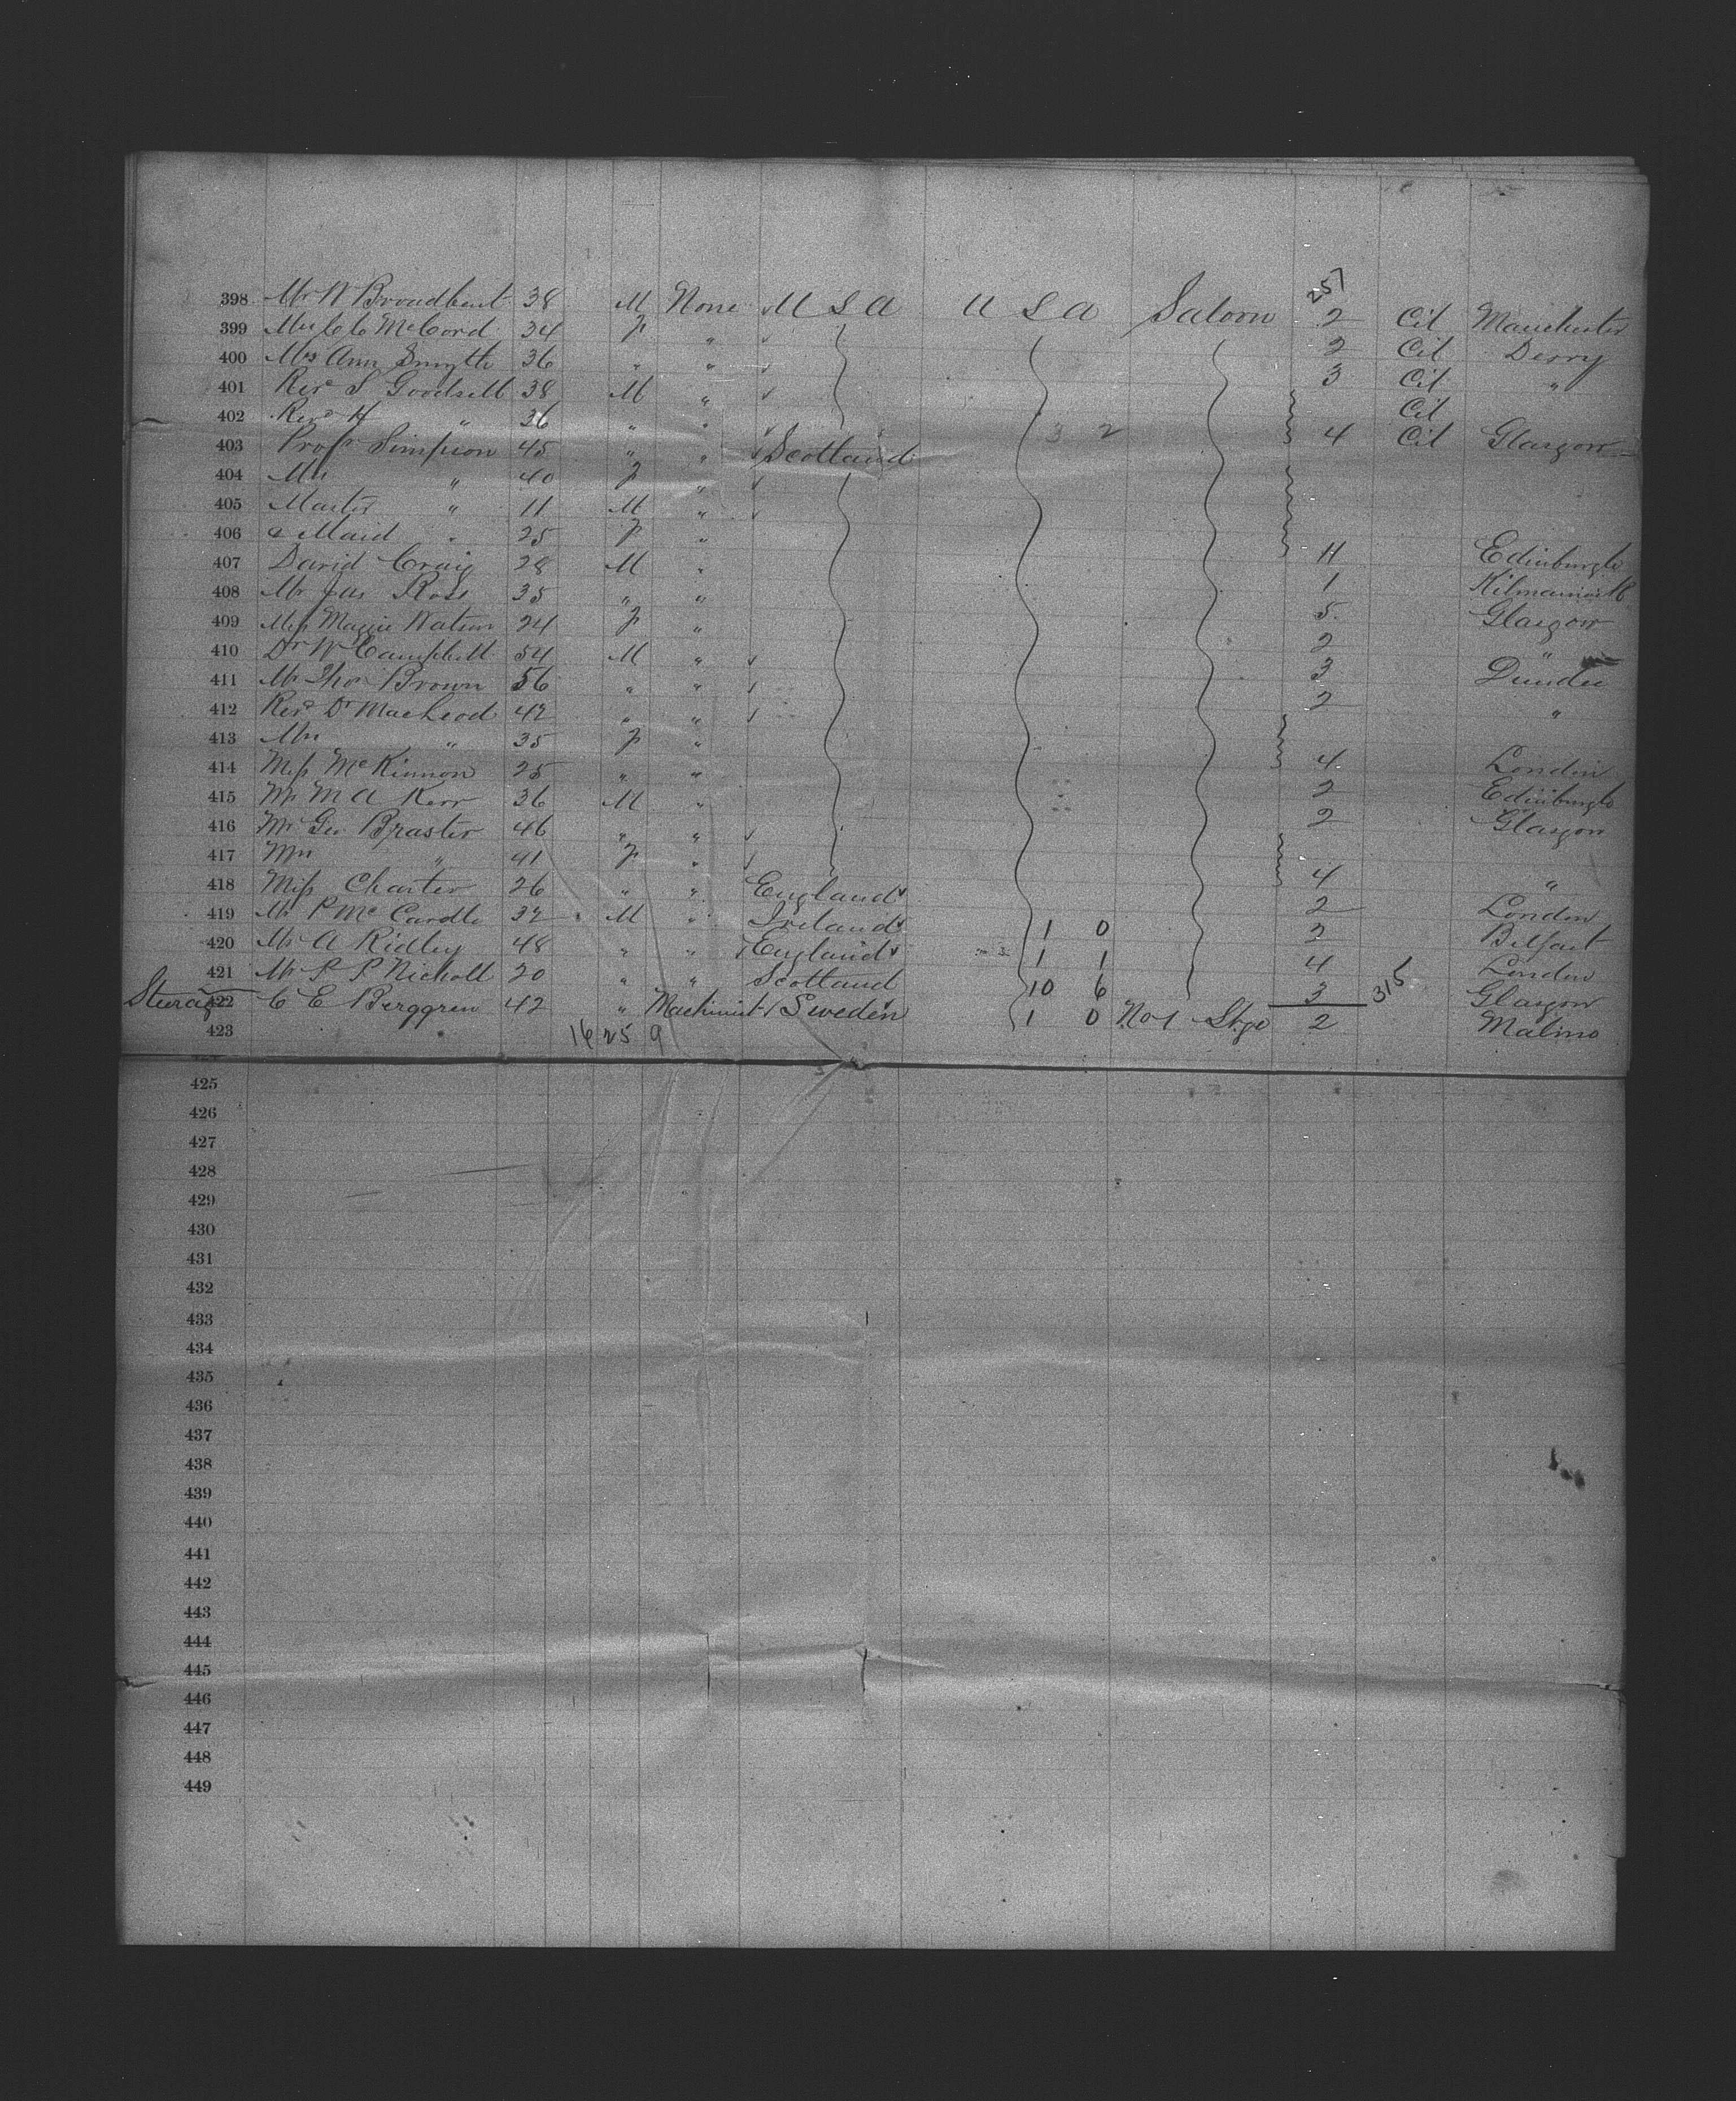 257
398 Mr W Broadbent 38 M None U S A U S A Saloon 2 Cit Manchester
399 McCord 34 F " 2 Cit Derry
400 Mrs Ann Smyth 36 " " 3 Cit "
401 Revd S Goodsell 38 M " Cit
402 Revd H " 36 " " 3 2 4 Cit Glasgow
403 Profr Simpson 45 " " Scotland
404 Mrs " 40 F "
405 Master " 11 M "
406 & Maid " 25 F "
407 David Craig 28 M " 4 Edinburgh
408 Mr Jas Ross 35 " " 1 Kilmarnock
409 Miss Maggie Watson 24 F " 5 Glasgow
410 Dr W Campbell 54 M " 2 "
411 Mr Thos Brown 56 " " 3 Dundee
412 Revd Dr MacLeod 42 " " 2 "
413 Mrs " 35 F "
414 Miss McKinnon 25 " " 4 London
415 Mr M A Kerr 36 M " 2 Edinburgh
416 Mr Geo Braster 46 " " 2 Glasgow
417 Mrs " 41 F "
418 Miss Charter 26 " " England 4 "
419 Mr P McCardle 32 M " Ireland 1 0 2 London
420 Mr A Ridley 48 " " England 1 1 2 Belfast
421 Mr P P Nicholl 20 " " Scotland 10 6 4 London
315
Steerage 422 C E Berggren 42 " Machinist Sweden 1 0 No 1 Stge 3 Glasgow
423 16 25 9 2 Malmo
425
426
427
428
429
430
431
432
433
434
435
436
437
438
439
440
441
442
443
444
445
446
447
448
449